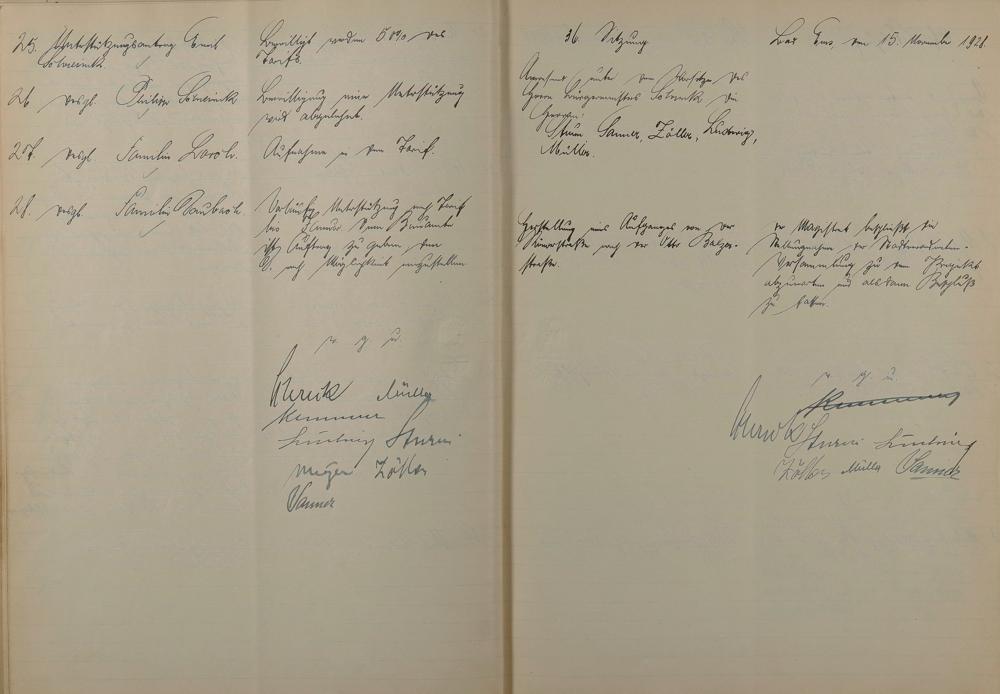 25. Unterstützungsantrag Emil
Schreinick
Bewilligt werden 50% des
Tarifs.
26 desgl. Philipp Schreinick
Bewilligung einer Unterstützung
wird abgelehnt.
27. desgl. Familie
Aufnahme in den Tarif.
28. desgl. Familie Baubach.
Vorläufig Unterstützung nach Tarif
bis Januar. Dem Bauamte
ist Auftrag zu geben, den
B. nach Möglichkeit einzustellen
v. g. u.
Müller
Kemmer
Ludwig Sturm
Meyer Zöller
Sanner
36. Sitzung
Bad Ems, den 15. November 1928.
Anwesend unter dem Vorsitze des
Herrn Bürgermeisters die
Herren:
Sturm, Sanner, Zöller, Ludwig,
Müller.
Herstellung eines Aufganges von der
Römerstraße nach der Otto Balzer-
straße.
Der Magistrat beschließt die
Stellungnahme der Stadtverordneten-
Versammlung zu dem Projekt
abzuwarten und alsdann Beschluß
zu fassen.
v. g. u.
Sturm Ludwig
Zöller Müller Sanner